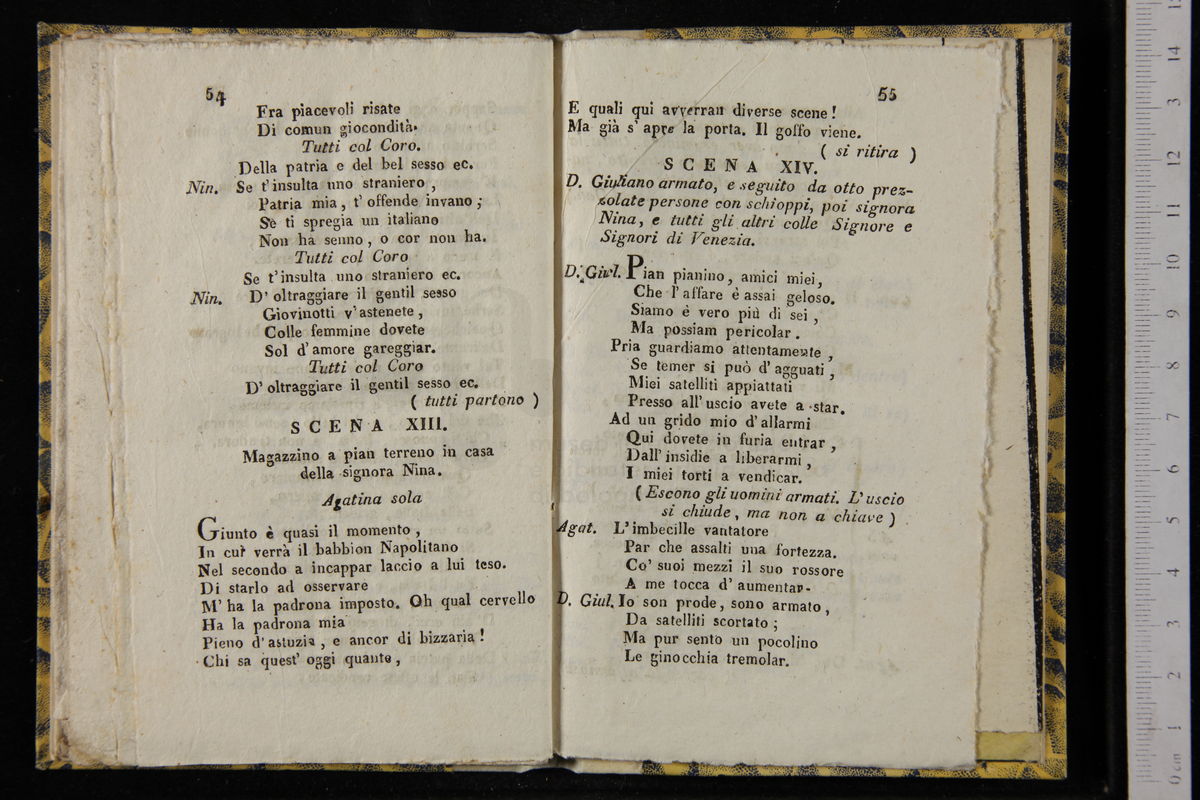 54
Fra piacevoli risate
Di comun giocondità.
Tutti col Coro.
Della patria e del bel sesso ec.
Nin. Se t'insulta uno straniero ,
Patria mia , t' offende invano ;
Se ti spregia un italiano
Non ha senno , o cor non ha.
Tutti col Coro
Se t'insulta uno straniero ec.
Nin. D' oltraggiare il gentil sesso
Giovinotti v'astenete ,
Colle femmine dovete
Sol d'amore gareggiar.
Tutti col Coro
D' oltraggiare il gentil sesso ec.
( tutti partono )
SCENA XIII.
Magazzino a pian terreno in casa
della signora Nina.
Agatina sola
Giunto è quasi il momento ,
In cui verrà il babbion Napolitano
Nel secondo a incappar laccio a lui teso.
Di starlo ad osservare
M' ha la padrona imposto. Oh qual cervello
Ha la padrona mia
Pieno d'astuzia , e ancor di bizzaria !
Chi sa quest' oggi quante ,
55
E quali qui avverran diverse scene !
Ma già s' apre la porta. Il goffo viene.
( si ritira )
SCENA XIV.
D. Giuliano armato, e seguito da otto prez-
zolate persone con schioppi, poi signora
Nina, e tutti gli altri colle Signore e
Signori di Venezia.
D. Giul. Pian pianino, amici miei,
Che l'affare è assai geloso.
Siamo è vero più di sei ,
Ma possiam pericolar .
Pria guardiamo attentamente ,
Se temer si può d' agguati ,
Miei satelliti appiattati
Presso all' uscio avete a star.
Ad un grido mio d'allarmi
Qui dovete in furia entrar ,
Dall' insidie a liberarmi ,
I miei torti a vendicar.
( Escono gli uomini armati. L'uscio
si chiude, ma non a chiave )
Agat. L'imbecille vantatore
Par che assalti una fortezza.
Co' suoi mezzi il suo rossore
A me tocca d' aumentar.
D. Giul. Io son prode, sono armato,
Da satelliti scortato ;
Ma pur sento un pocolino
Le ginocchia tremolar.
0 cm 1 2 3 4 5 6 7 8 9 10 11 12 13 14